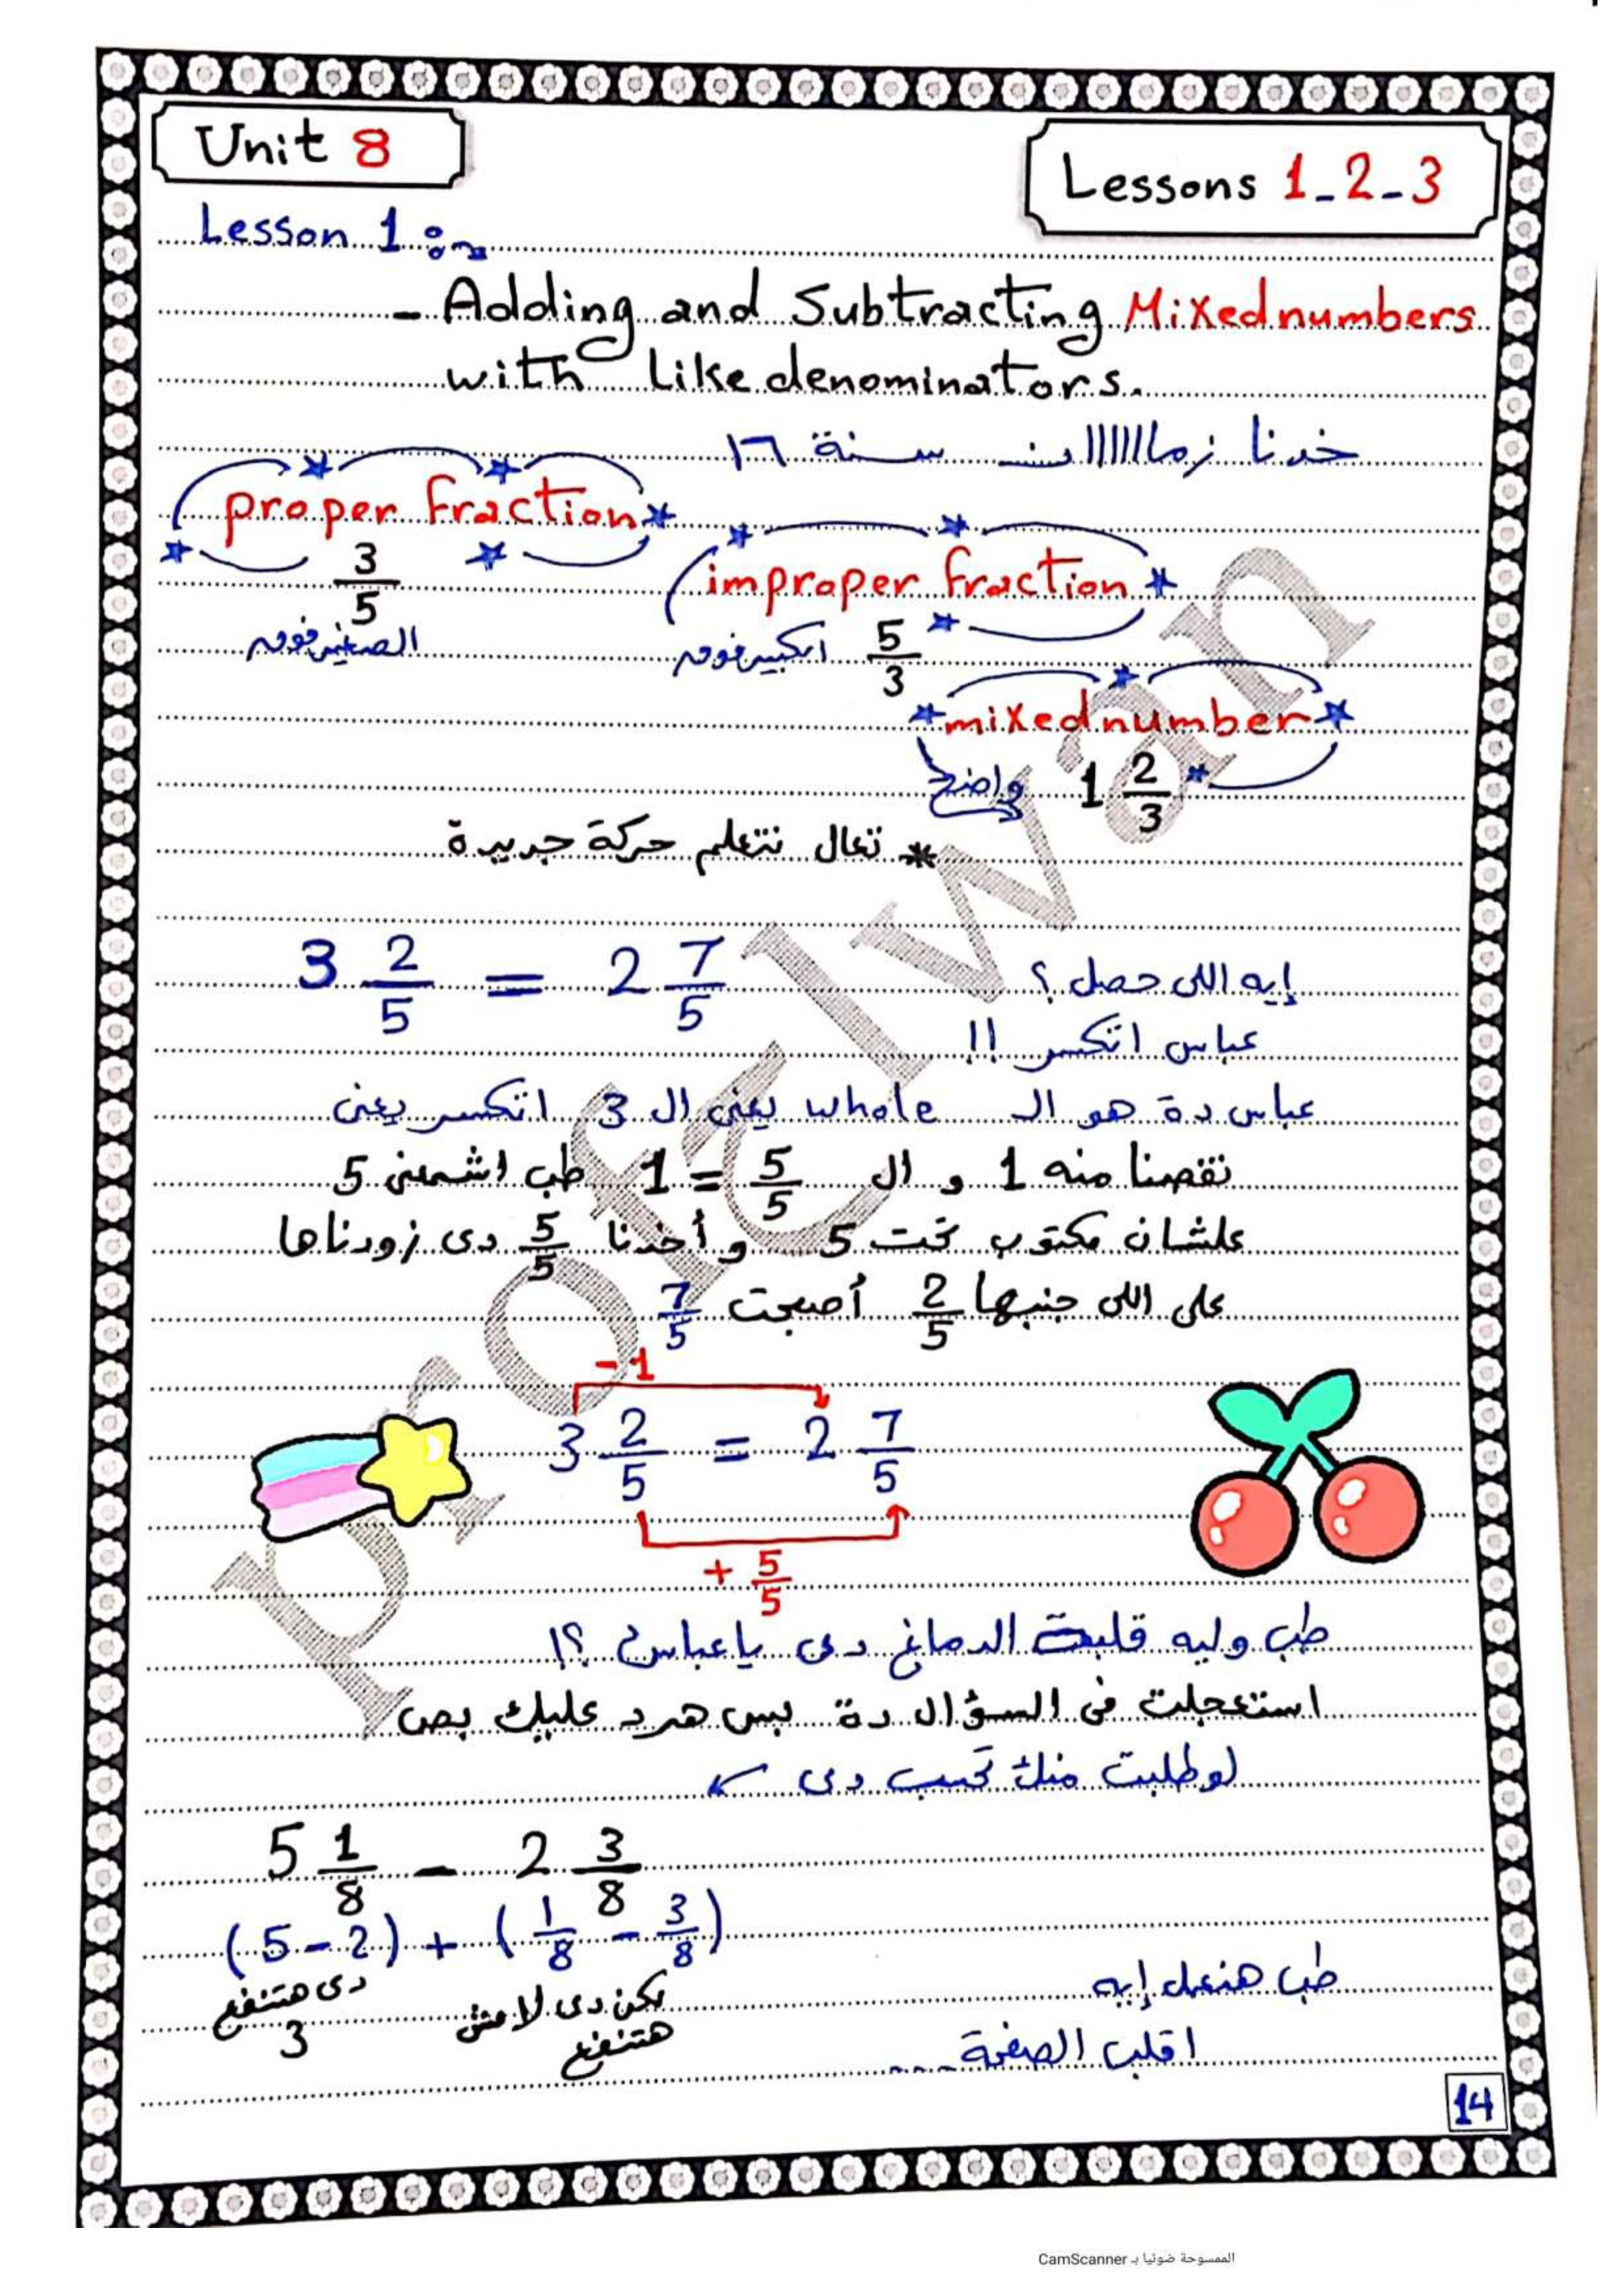 Unit 8
Lessons 1-2-3
Lesson 1:
- Adding and Subtracting Mixed numbers
with like denominators.
خدنا زمااااااان سنة ١٦
proper fraction
3/5
الصغير فوق
improper fraction
5/3
الكبير فوق
mixed number
1 2/3 واضح
* تعال نتعلم حركة جديدة
3 2/5 = 2 7/5
إيه اللى حصل ؟
عباس اتكسر !!
عباس دة هو الـ whole يعنى ال 3 اتكسر يعنى
نقصنا منه 1 و ال 5/5 = 1 طب اشمعنى 5
علشان مكتوب تحت 5 و أخدنا 5/5 دى زودناها
على اللى جنبها 2/5 أصبحت 7/5
-1
3 2/5 = 2 7/5
+ 5/5
طب وليه قلبت الدماغ دى يا عباس ؟!
استعجلت فى السؤال دة بس هرد عليك بص
لو طلبت منك تحسب دى
5 1/8 - 2 3/8
(5-2) + (1/8 - 3/8)
دى هتنفع
3
لكن دى لا مش
هتنفع
طب هنعمل إيه
اقلب الصفحة ....
14
Prof Elwan
الممسوحة ضوئيا بـ CamScanner